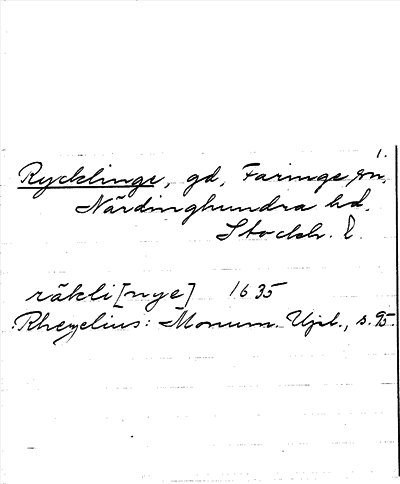 1.
Rycklinge, gd, Faringe sn,
Närdinghundra hd.
Stockh. l.
räkli[nge] 1635
Rhezelius: Monum. Upl., s. 95.